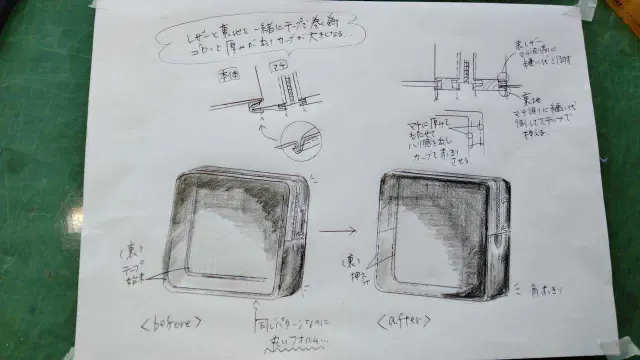 レザーと裏地を一緒にテープで巻く断
ゴロッと厚みが出てカーブが大きくなる...
本体
マチ
表レザー
マチ側に
縫い代を倒す
裏地
マチ側に縫い代
倒してステッチで
押える
マチに厚みを
もたせて
ハリ感を出し
カーブをすっきり
させる
(裏)
テープ
始末
(裏)
押え
<before>
同じパターンなのに
<after>
角すっきり